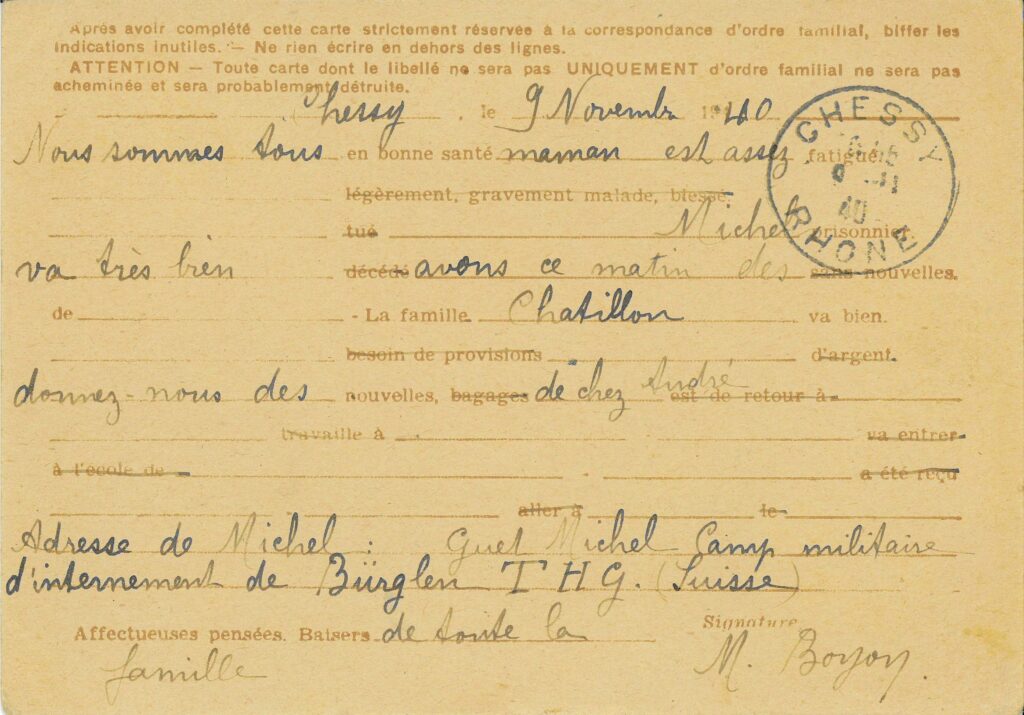 Après avoir complété cette carte strictement réservée à la correspondance d'ordre familial, biffer les
indications inutiles. — Ne rien écrire en dehors des lignes.
ATTENTION — Toute carte dont le libellé ne sera pas UNIQUEMENT d'ordre familial ne sera pas
acheminée et sera probablement détruite.
Chessy, le 9 Novembr 1940
Nous sommes tous en bonne santé maman est assez fatigué.
légèrement, gravement malade, blessé.
tué Michel prisonnier.
va très bien décédé avons ce matin des sans nouvelles.
de - La famille Chatillon va bien.
besoin de provisions d'argent.
donnez-nous des nouvelles, bagages de chez André est de retour à
travaille à va entrer
à l'école de a été reçu
aller à le
Adresse de Michel : Guet Michel Camp militaire
d'internement de Bürglen T H G. (Suisse)
Affectueuses pensées. Baisers de toute la Signature
famille M. Boyoy
CHESSY
9 -11
40
RHONE